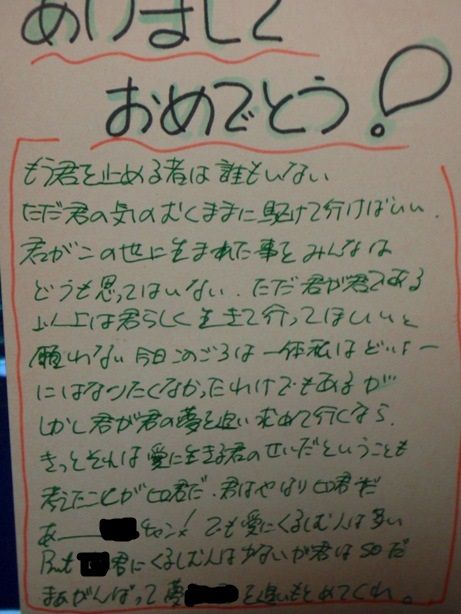 あけまして
おめでとう!
もう君を止める者は誰もいない
ただ君の気のむくままに駆けて行けばいい.
君がこの世に生まれた事をみんなは
どうも思ってはいない.ただ君が君である
以上は君らしく生きて行ってほしいと
願わない今日このごろは一体私はどいよー
にはなりたくなかったわけでもあるが
しかし君が君の夢を追い求めて行くなら.
きっとそれは愛に生きる君のせいだということも
考えたことが 君だ.君はやはり 君だ
あー チャン!でも愛にくるしむ人は多い
But 君にくるしむ人は少ないが君はSOだ
まあがんばって夢 を追いもとめてくれ。